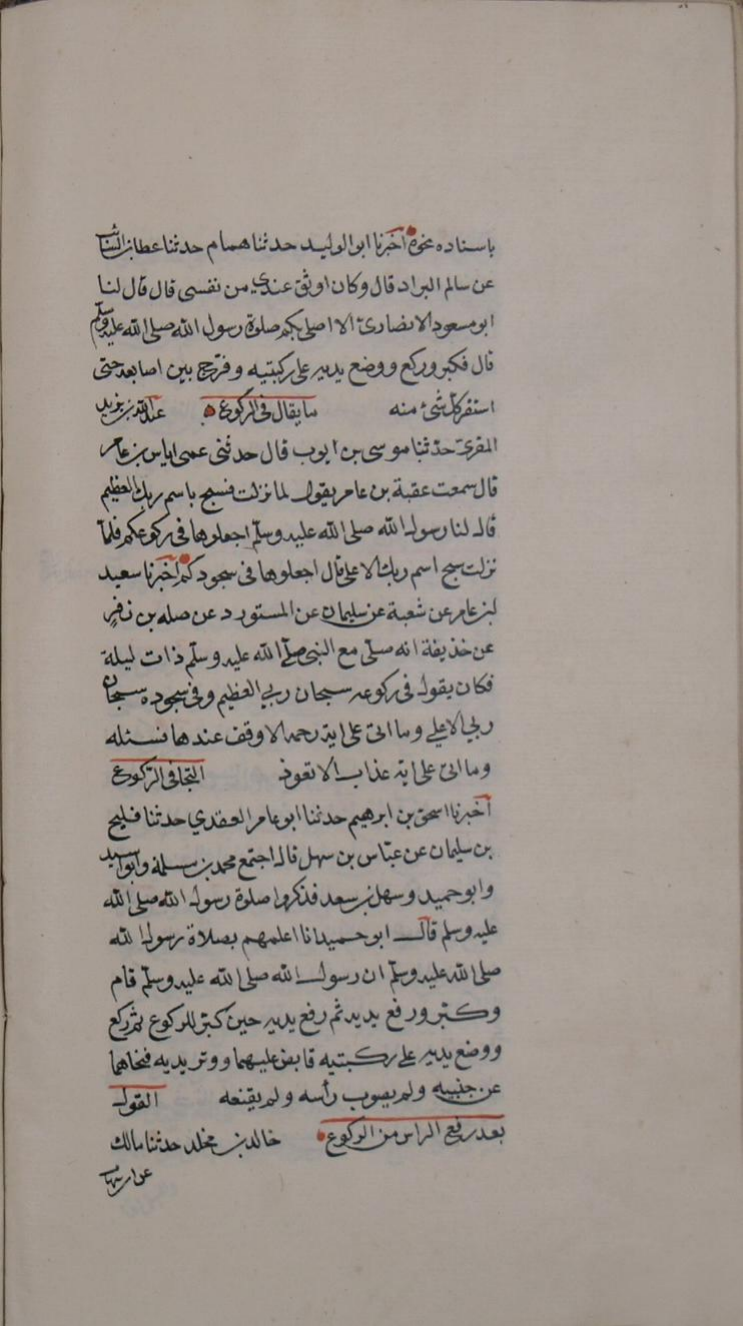 باسناده نحوه اخبرنا ابو الوليد حدثنا همام حدثنا عطا بن السائب
عن سالم البراد قال وكان اوثق عندي من نفسى قال قال لنا
ابو مسعود الانصارى الا اصلى بكم صلوة رسول الله صلى الله عليه وسلم
قال فكبر وركع ووضع يديه على ركبتيه وفرج بين اصابعه حتى
استقر كل شئ منه ما يقال فى الركوع عبد الله بن يزيد
المقرئ حدثنا موسى بن ايوب قال حدثنى عمى اياس بن عامر
قال سمعت عقبة بن عامر يقول لما نزلت فسبح باسم ربك العظيم
قال لنا رسول الله صلى الله عليه وسلم اجعلوها فى ركوعكم فلما
نزلت سبح اسم ربك الاعلى قال اجعلوها فى سجودكم اخبرنا سعيد
بن عامر عن شعبة عن سليمان عن المستورد عن صله بن زفر
عن حذيفة انه صلى مع النبى صلى الله عليه وسلم ذات ليلة
فكان يقول فى ركوعه سبحان ربي العظيم وفى سجوده سبحان
ربي الاعلي وما اتى على اية رحمه الا وقف عندها فسئله
وما اتى على اية عذاب الا تعوذ التجافى الركوع
اخبرنا اسحق بن ابرهيم حدثنا ابو عامر العقدي حدثنا فليح
بن سليمان عن عباس بن سهل قال اجتمع محمد بن مسلمة وابو اسيد
وابو حميد وسهل بن سعد فذكروا صلوة رسول الله صلى الله
عليه وسلم قال ابو حميد انا اعلمهم بصلاة رسول الله
صلى الله عليه وسلم ان رسول الله صلى الله عليه وسلم قام
وكبر ورفع يديه ثم رفع يديه حين كبر للركوع ثم ركع
ووضع يديه على ركبتيه قابض عليهما ووتر يديه فنحاهما
عن جنبيه ولم يصوب رأسه ولم يقنعه القول
بعد رفع الراس من الركوع خالد بن مخلد حدثنا مالك
عن ابن شهاب